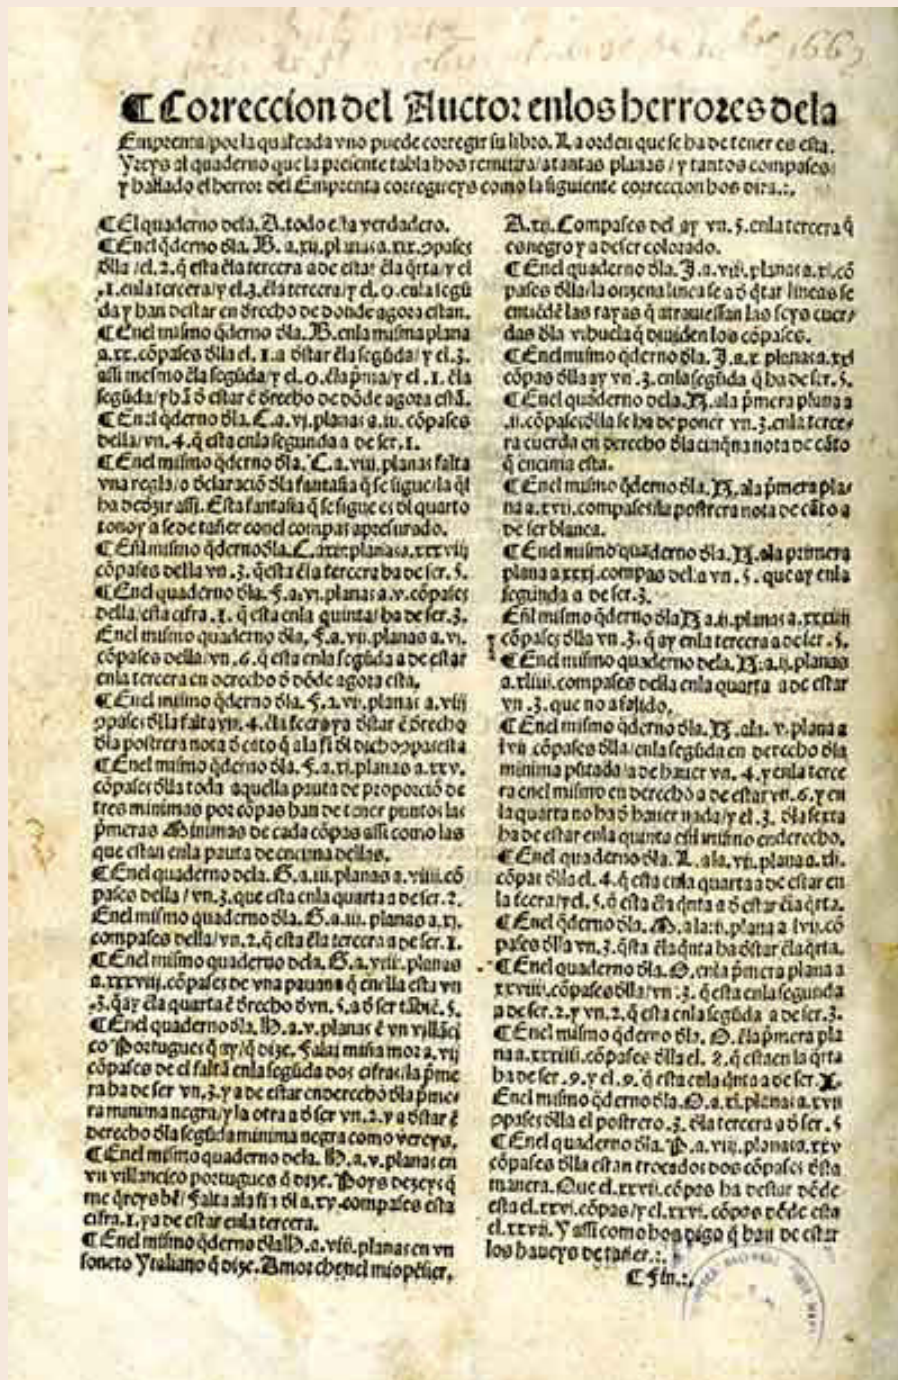 1667
¶ Correccion del Auctor enlos herrores dela
Emprenta/por la qual cada vno puede corregir su libro. La orden que se ha de tener es esta.
Yreys al quaderno que la presente tabla hos remitira/atantas planas/y tantos compases/
y hallado el herror del Emprenta corregireys como la siguiente correccion hos dira.:.
¶ El quaderno dela. A. todo esta verdadero.
¶ Enel q̄derno dl̄a. B. a. xii. planas a. xix. ɔpases
dl̄la/el. 2. q̄ esta ēla tercera a de estar ēla q̄rta/y el
.1. enla tercera/y el.3. ēla tercera/y el. 0. enla segū
da y han destar en drecho de donde agora estan.
¶ Enel mismo q̄derno dl̄a. B. enla misma plana
a. xx. cōpases dl̄la el. 1. a dstar ēla segūda/y el.3.
assi mesmo ēla segūda/y el. 0. ēla p̄mia/y el .1. ēla
segūda/y hā d̄ estar ē drecho de dōde agora estā.
¶ Enel q̄derno dl̄a. C. a. vj. planas a. iii. cōpases
della/vn. 4. q̄ esta enla segunda a de ser .1.
¶ Enel mismo q̄derno dl̄a. C. a. viii. planas falta
vna regla/o dclaraciō dl̄a fantasia q̄ se sigue/la q̄l
ha de dzir assi. Esta fantasia q̄ se sigue es dl quarto
tono y a se de tañer conel compas apresurado.
¶ Enl mismo q̄derno dl̄a. C. a planas a. xxxviij
cōpases della vn .3. q̄ esta ēla tercera ha de ser .5.
¶ Enel quaderno dl̄a. F. a. vj. planas a. v. cōpases
della/esta cifra .1. q̄ esta enla quinta/ha de ser.3.
Enel mismo quaderno dl̄a. F. a. vij. planas a. vj.
cōpases della/vn .6. q̄ esta enla segūda a de estar
enla tercera en drecho d̄ dōde agora esta.
¶ Enel mismo q̄derno dl̄a. F. a. vij. planas a. viij
ɔpases dl̄la falta vn. 4. ēla dstar ē drecho
dl̄a postrera nota d̄ cāto q̄ ala fi dl dicho ɔpas esta
¶ Enel mismo q̄derno dl̄a. F. a. xj. planas a. xxv.
cōpases dl̄la toda aquella pauta de proporciō de
tres minimas por cōpas han de tener puntos las
p̄meras Minimas de cada cōpas assi como las
que estan enla pauta de encima dellas.
¶ Enel quaderno dela. G. a. iii. planas a. viiii. cō
pases della/vn .3. que esta enla quarta a de ser .2.
Enel mismo quaderno dl̄a. G. a. iii. planas a. xj.
compases della/vn .2. q̄ esta ēla tercera a de ser .1.
¶ Enel mismo quaderno dela. G. a. viii. planas
a. xxxviij. cōpases de vna pauana q̄ enella esta vn
.3. q̄ ay ēla quarta ē drecho d̄ vn .5. a d̄ ser tābiē .5.
¶ Enel quaderno dl̄a. H. a. v. planas ē vn villāci
co Portugues q̄ ay/q̄ dize. Falai miña mor a. vij
cōpases de el faltā enla segūda dos cifras/la p̄me
ra ha de ser vn .3. y a de estar en derecho dl̄a p̄me⸗
ra minima negra/y la otra a d̄ ser vn .2. y a dstar ē
derecho dl̄a segūda minima negra como vereys.
¶ Enel mismo quaderno dela. H. a. v. planas en
vn villancico portugues q̄ dize. Poys dezeys q̄
me q̄reys bē/falta ala fi dl a. xv. compases esta
cifra .1. y a de estar enla tercera.
¶ Enel mismo q̄derno dl̄a H. a. viii. planas en vn
soneto Ytaliano q̄ dize. Amor che nel mio pēsier.
A. xii. Compases del ay vn .5. enla tercera q̄
es negro y a de ser colorado.
¶ Enel quaderno dl̄a. J. a. viii. planas a. xi. cō
pases dl̄la/la onzena linea se a d̄ q̄tar lineas se
entiēdē las rayas q̄ atrauiessan las seys cuer⸗
das dl̄a vihuela q̄ diuiden los cōpases.
¶ Enel mismo q̄derno dl̄a. J. a. x planas a. xxi
cōpas dl̄la ay vn .3. enla segūda q̄ ha de ser .5.
¶ Enel quaderno dela. K. ala p̄mera plana a
.ii. cōpases dl̄la se ha de poner vn .3. enla terce⸗
ra cuerda en derecho dl̄a cinq̄na nota de cāto
q̄ encima esta.
¶ Enel mismo q̄derno dl̄a. K. ala p̄mera pla⸗
na a. xvii. compases/la postrera nota de cāto a
de ser blanca.
¶ Enel mismo quaderno dl̄a. K. ala primera
plana a xxxj. compas del a vn .5. que ay enla
segunda a de ser .3.
Enl mismo q̄derno dl̄a K a. ii. planas a. xxxiiii
cōpases dl̄la vn .3. q̄ ay enla tercera a de ser .5.
¶ Enel mismo quaderno dela. K. a. ij. planas
a. xliiii. compases della enla quarta a de estar
vn .3. que no a salido.
¶ Enel mismo q̄derno dl̄a. K. ala. v. plana a
lvii cōpases dl̄la/enla segūda en derecho dl̄a
minima pūtada a de hauer vn. 4. y enla terce
ra enel mismo en derecho a de estar vn .6. y en
la quarta no ha d̄ hauer nada/y el .3. dl̄a sexta
ha de estar enla quinta enl mismo enderecho.
¶ Enel quaderno dl̄a. L. ala. vii. plana a. xli.
cōpas dl̄la el. 4. q̄ esta enla quarta a de estar en
la y el .5. q̄ esta ēla q̄nta a d̄ estar ēla q̄rta.
¶ Enel q̄derno dl̄a. M. ala: ii. plana a lvii. cō
pases dl̄la vn .3. q̄sta ēla q̄nta ha dstar ēla q̄rta.
¶ Enel quaderno dl̄a. O. enla p̄mera plana a
xxviii. cōpases dl̄la/vn .3. q̄ esta enla segunda
a de ser .2. y vn .2. q̄ esta enla segūda a de ser .3.
¶ Enel mismo q̄derno dl̄a. O. ēla p̄mera pla
na a. xxxiiii. cōpases dl̄la el. 8. q̄ esta en la q̄rta
ha de ser .9. y el .9. q̄ esta enla q̄nta a de ser. X.
Enel mismo q̄derno dl̄a. O. a. xi. planas a. xvii
ɔpases dl̄la el postrero .3. dl̄a tercera a d̄ ser .5
¶ Enel quaderno dl̄a. P. a. viij. planas a. xxv
cōpases dl̄la estan trocados dos cōpases dsta
manera. Que el. xxvii. cōpas ha destar dōde
esta el. xxvi. cōpas/y el. xxvi. cōpas dōde esta
el. xxvii. Y assi como hos digo q̄ han de estar
los haueys de tañer.:.
¶ Fin.:.